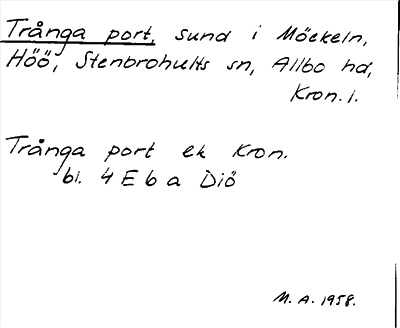 Trånga port, sund i Möckeln,
Höö, Stenbrohults sn, Allbo hd,
Kron. l.
Trånga port ek Kron.
bl. 4 E b a Diö
M. A. 1958.